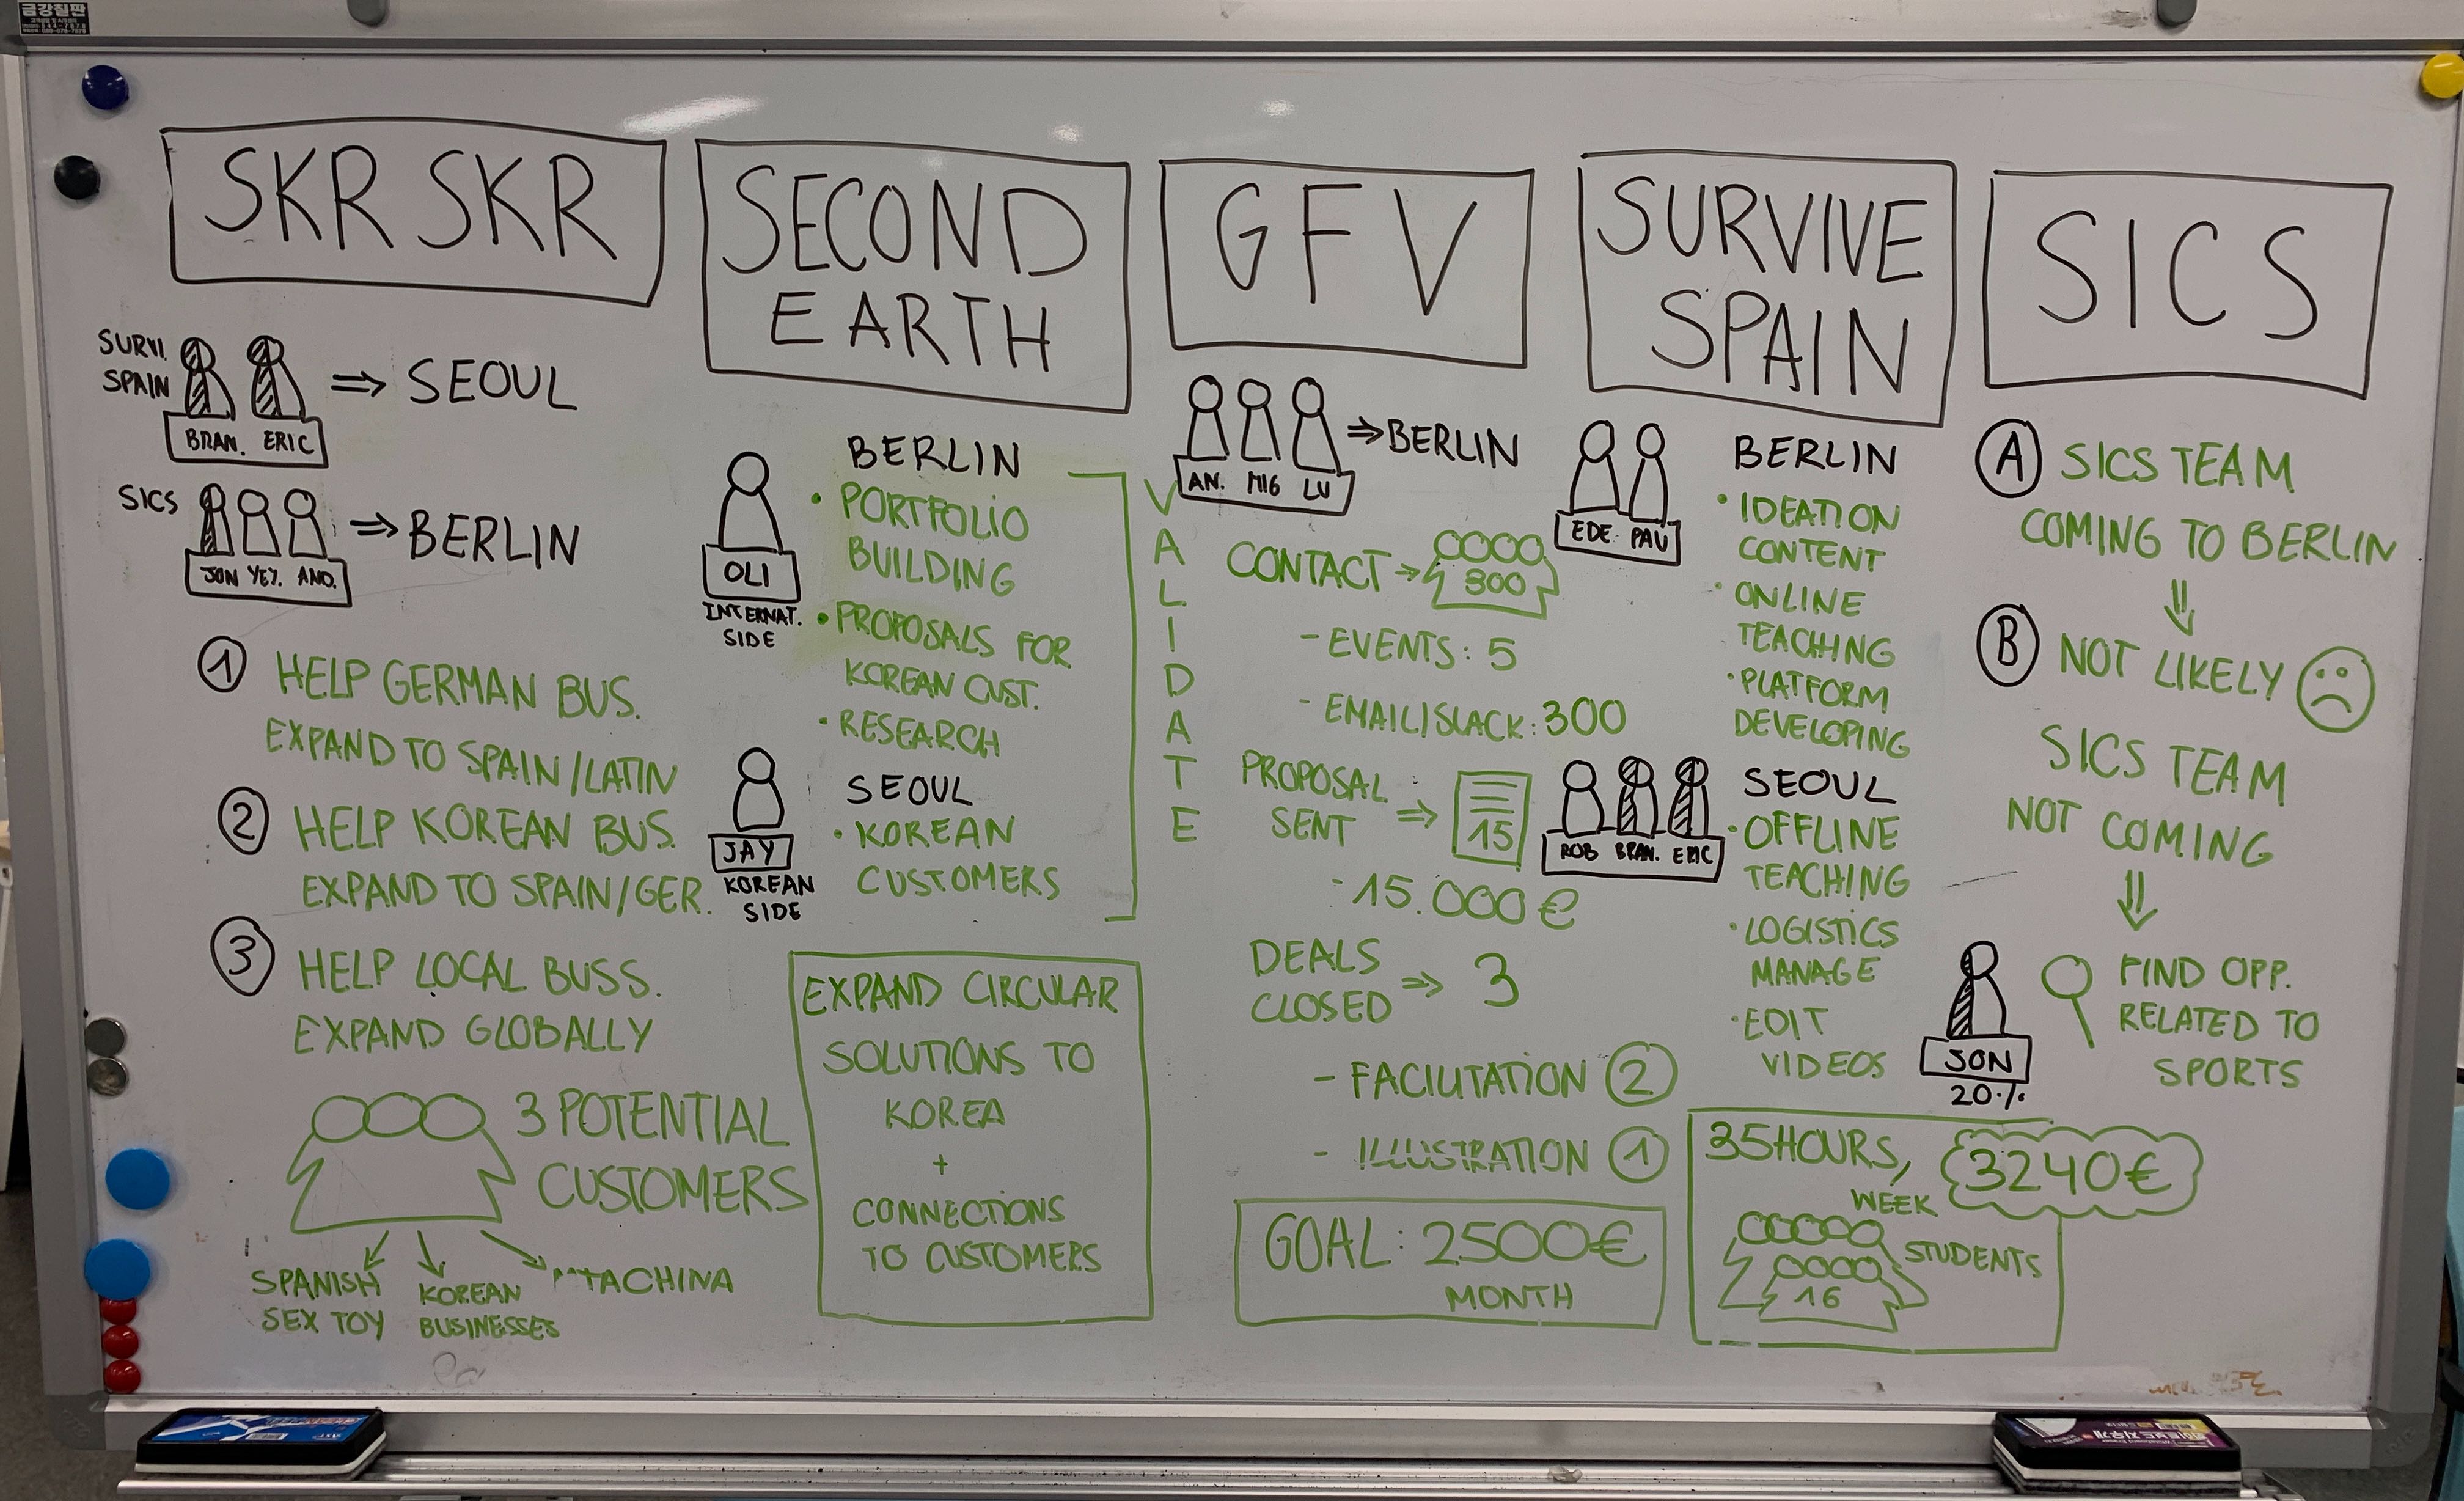 금강칠판
SKR SKR
SURVI.
SPAIN
BRAN. ERIC
⇒ SEOUL
SICS
JON YEY. AND.
⇒ BERLIN
1 HELP GERMAN BUS.
EXPAND TO SPAIN/LATIN
2 HELP KOREAN BUS.
EXPAND TO SPAIN/GER.
3 HELP LOCAL BUSS.
EXPAND GLOBALLY
3 POTENTIAL
CUSTOMERS
SPANISH
SEX TOY
KOREAN
BUSINESSES
SECOND
EARTH
OLI
INTERNAT.
SIDE
BERLIN
• PORTFOLIO
BUILDING
• PROPOSALS FOR
KOREAN CUST.
• RESEARCH
JAY
KOREAN
SIDE
SEOUL
• KOREAN
CUSTOMERS
VALIDATE
EXPAND CIRCULAR
SOLUTIONS TO
KOREA
+
CONNECTIONS
TO CUSTOMERS
GFV
AN. MIG LU
⇒ BERLIN
CONTACT → 300
- EVENTS: 5
- EMAIL/SLACK: 300
PROPOSAL
SENT ⇒ 15
- 15.000€
DEALS
CLOSED ⇒ 3
- FACILITATION 2
- ILLUSTRATION 1
GOAL: 2500€
MONTH
SURVIVE
SPAIN
EDE. PAU
BERLIN
• IDEATION
CONTENT
• ONLINE
TEACHING
• PLATFORM
DEVELOPING
ROB BRAN. ERIC
SEOUL
• OFFLINE
TEACHING
• LOGISTICS
MANAGE
• EDIT
VIDEOS
35HOURS/
WEEK
3240€
STUDENTS
16
SICS
A SICS TEAM
COMING TO BERLIN
⇓
B NOT LIKELY
SICS TEAM
NOT COMING
⇓
JON
20%
FIND OPP.
RELATED TO
SPORTS